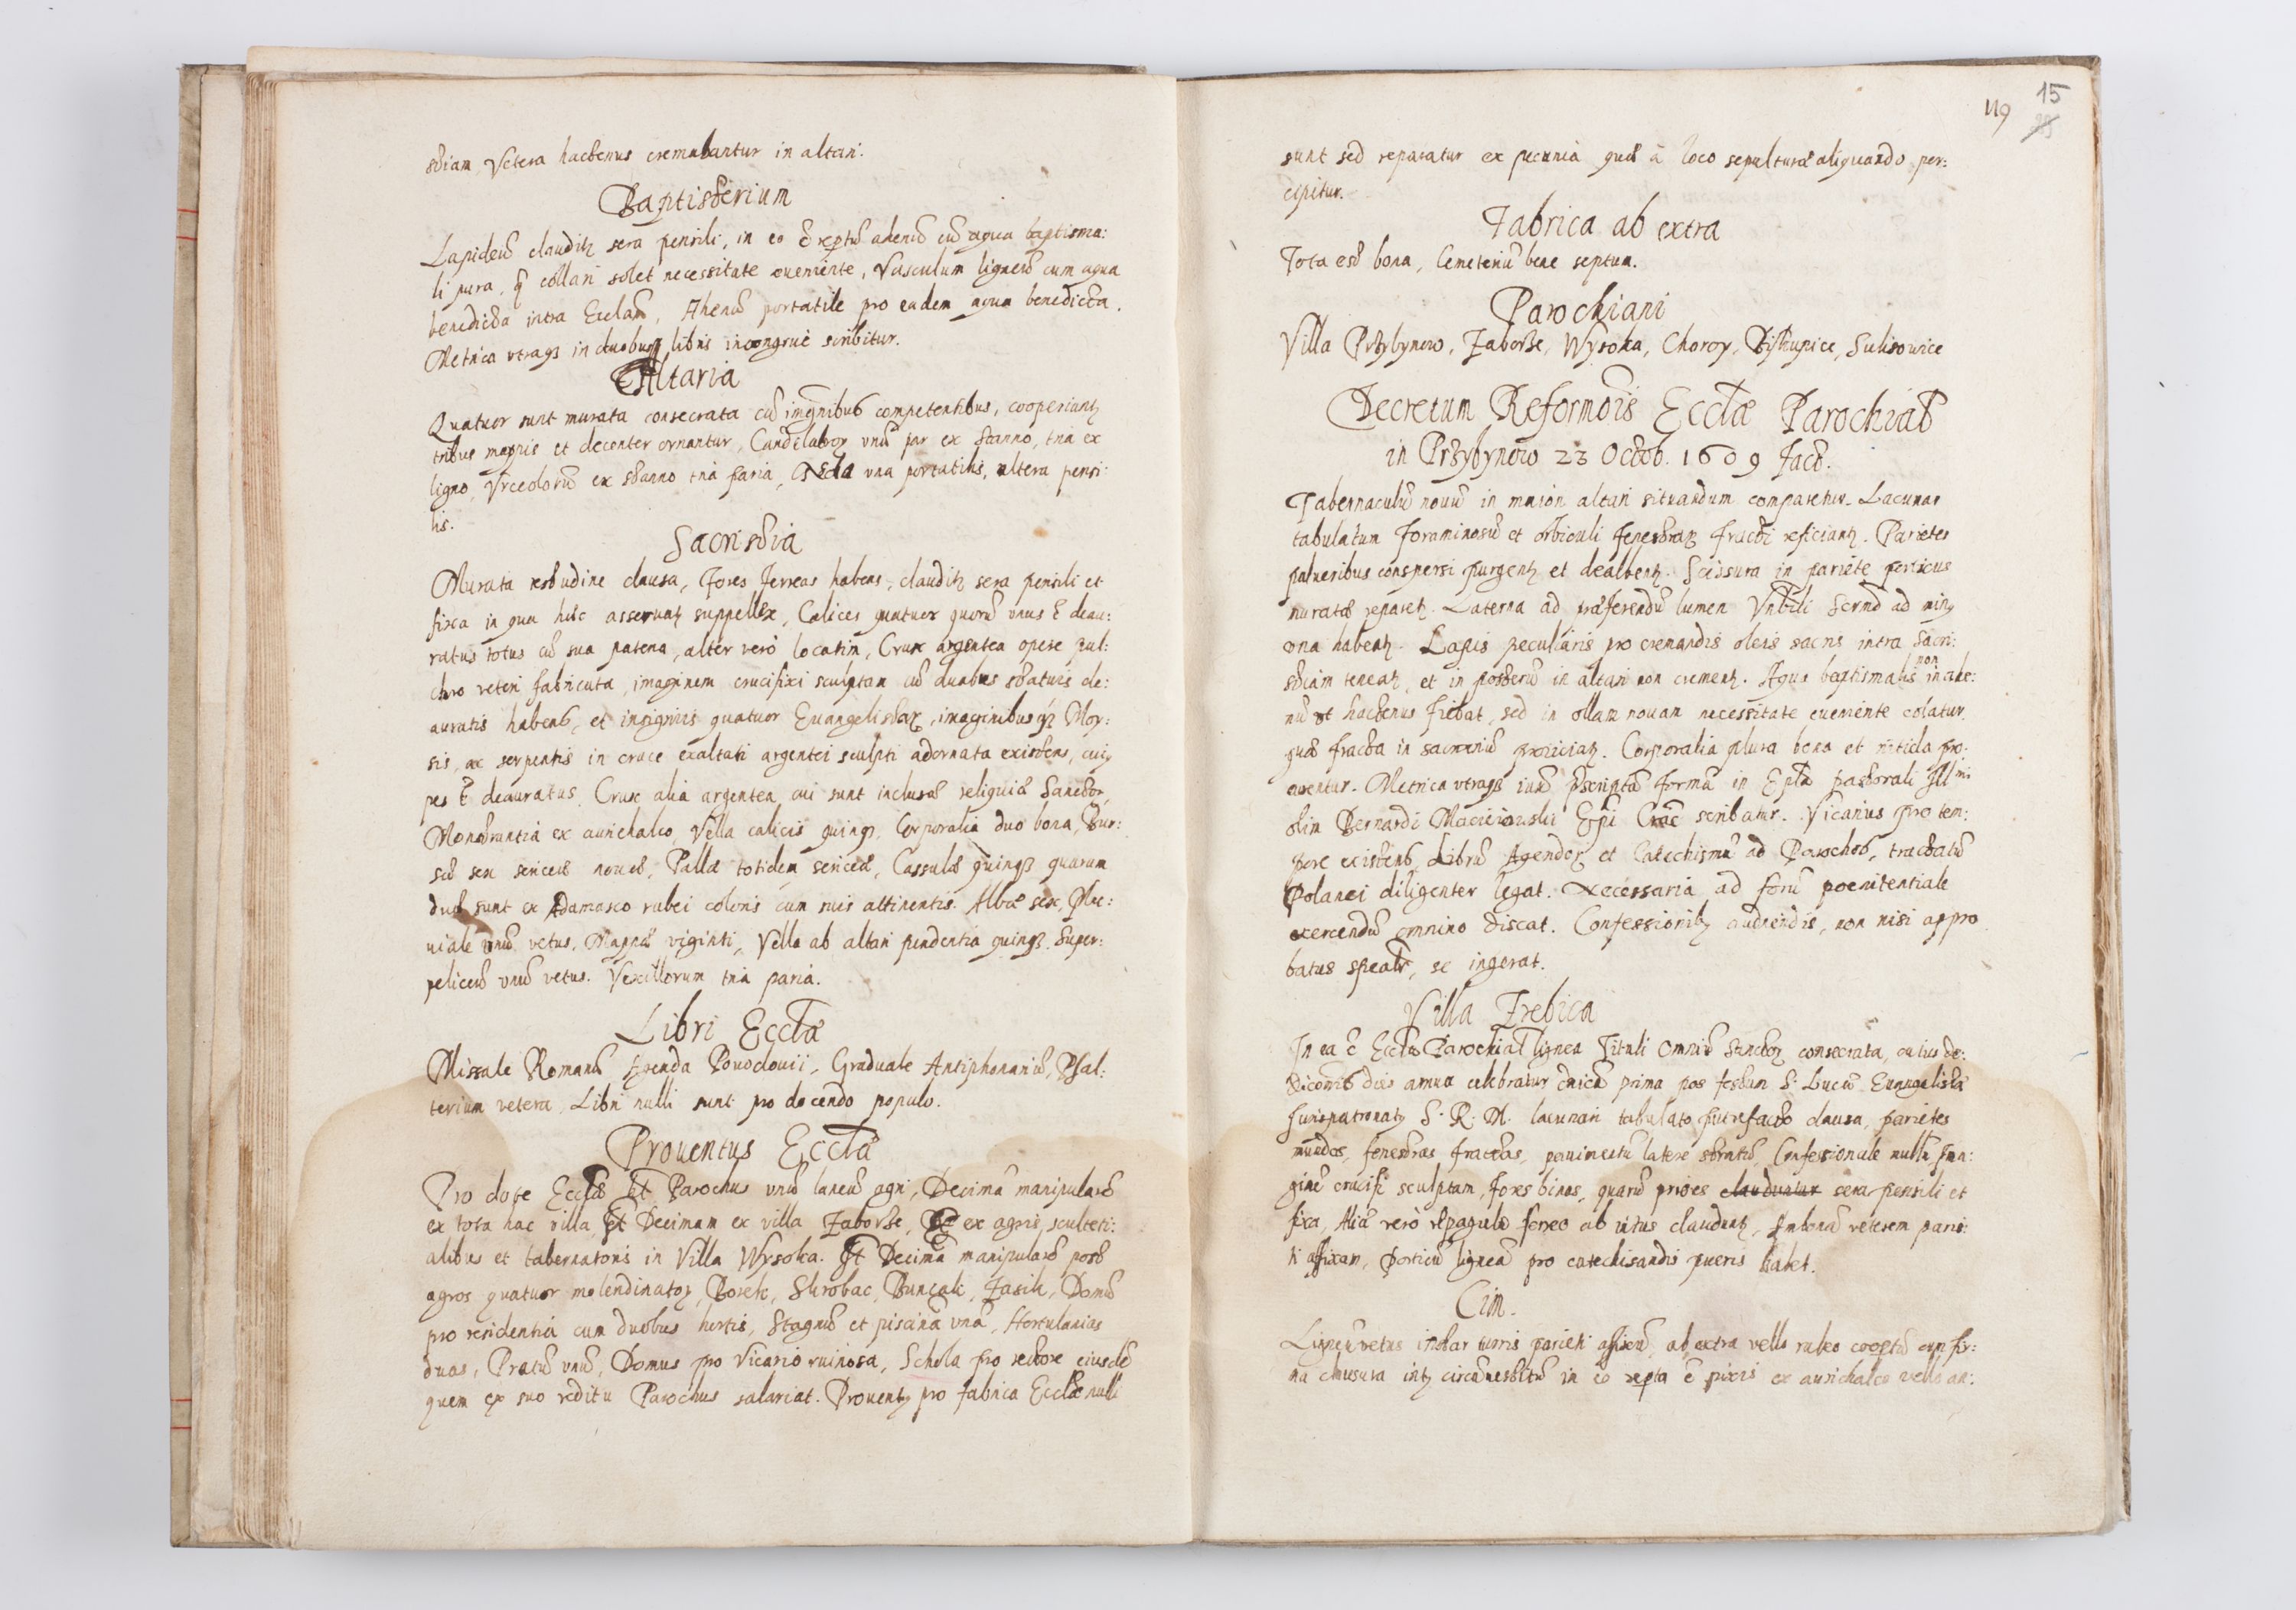 stiam, Vetera hactenus cremabantur in altari.
Baptisterium
Lapideũ claudit͛ sera pensili, in eo ẽ reptũ ahenũ cũ aqua baptisma:
li pura, q̃ collari solet necessitate eveniente, Vasculum ligneũ cum aqua
benedicta intra Ecclam̃, Ahenũ portatile pro eadem aqua benedicta.
Metrica utraqꝫ in duobus libris incongruè scribitur.
Altaria
Quatuor sunt murata consecrata cũ imaginibus competentibus, cooperiunt͛
tribus mappis et decenter ornantur, Candelabroꝝ unũ par ex stanno, tria ex
ligno, Urceolorũ ex stanno tria paria, una portatilis, altera pensi:
lis.
Sacristia
Murata testudine clausa, Fores ferreas habens, claudit͛ sera pensili et
fixa in qua hæc asservant͛ suppellex, Calices quatuor quorũ unus ẽ deau:
ratus totus cũ sua patena, alter verò locatim, Crux argentea opere pul:
chro veteri fabricata, imaginem crucifixi sculptam cũ duabus statuis de:
auratis habens, et insigniis quatuor Evangelistaꝝ, imaginibusqꝫ Moy:
sis, ac serpentis in cruce exaltati argentei sculpti adornata existens, cuiꝯ
pes ẽ deauratus, Crux alia argentea, cui sunt inclusæ reliquiæ Sanctoꝝ,
Monstrantia ex aurichalco, Vella calicis quinqꝫ, Corporalia duo bona, Bur:
sæ sex sericeæ novæ, Pallæ totidem sericeæ, Cassulæ quinqꝫ quarum
duæ sunt ex Adamasco rubei coloris cum suis attinentis. Albæ sex, Plu:
viale unũ vetus, Mappæ viginti, Vella ab altari pendentia quinqꝫ, Super:
peliceũ unũ vetus. Vexillorum tria paria.
Libri Ecclæ
Missale Romanũ, Agenda Povodovii, Graduale Antiphonariũ, Psal:
terium vetera, Libri nulli sunt pro docendo populo.
Proventus Ecclæ
Pro dote Ecclæ Parochus unũ laneũ agri, Decimã manipularẽ
ex tota hac villa, Decimam ex villa Zaborze, ex agris sculteti:
alibus et tabernatoris in Villa Wysoka. Decimã manipularẽ post
agros quatuor molendinatoꝝ, Borek, Skrobac, Bunçak, Jasik, Domũ
pro residentia cum duobus hortis, Stagnũ et piscina unã, Hortulanias
duas, Pratũ unũ, Domus pro Vicario ruinosa, Schola pro rectore eiusdẽ
quem ex suo reditu Parochus salariat. Proventꝯ pro fabrica Ecclæ nulli
119 15
sunt sed reparatur ex pecunia quæ à loco sepulturæ aliquando per:
cipitur.
Fabrica ab extra
Tota est bona, Cemeteriũ bene septum.
Parochiani
Villa Przybynow, Zaborze, Wysoka, Choroy, Biskupice, Sulisowice
Decretum Reformõis Ecclæ Parochiał
in Przybynow 23 Octob. 1609 fact.
Tabernaculũ novũ in maiori altari situandum comparetur. Lacunar
tabulatum foraminosũ et orbiculi fenestraꝝ fracti reficiant͛. Parietes
pulveribus conspersi purgent͛ et dealbent͛. Scissura in pariete porticus
muratæ reparet͛. Laterna ad præferendũ lumen ad minꝯ
una habeat͛. Lapis peculiaris pro cremandis oleis sacris intra sacri:
stiam teneat͛, et in posterũ in altari non crement͛. Aqua baptismalis non in ahe:
nũ ut hactenus fiebat, sed in ollam novam necessitate eveniente colatur
quæ fracta in sacrariũ proiiciat͛. Corporalia plura bona et nitida pro:
curentur. Metrica utraqꝫ iuxta p̃scriptã formã in Epla pastorali Illmi
olim Bernardi Macieiowski Ep̃i Crac̃ scribatur. Vicarius pro tem:
pore existens, Librũ Agendoꝝ et Catechismũ ad Parochos, tractatũ
Polanci diligenter legat. Necessaria ad forũ poenitentiale
exercendũ omnino discat. Confessionibꝯ audiendis, non nisi appro
batus se ingerat.
Villa Trebica
In ea ẽ Eccla Parochiał lignea Tituli Omniũ Sanctoꝝ consecrata, cuius de:
dicõnis dies annua celebratur prima pos festum S. Lucæ Evangelistæ
Jurispatronatꝯ S. R. M. lacunari tabulato putrefacto clausa, parietes
mundos, fenestras fractas, pavimentũ latere stratũ, Confessionale nullũ, Ima:
ginẽ crucifi sculptam, fores binas, quarũ priores clauduntur sera pensili et
fixa, Aliæ verò repagulo ferreo ab intus claudunt͛, Ambonã veterem parie:
ti affixam, Porticũ ligneã pro catechisandis pueris habet.
Cim.
Ligneũ vetus instar turris parieti affixũ, ab extra vello rubeo coopertũ cum fir:
ma clausura intꝯ circũvestitũ in eo repta ẽ pixis ex aurichalco vello an: